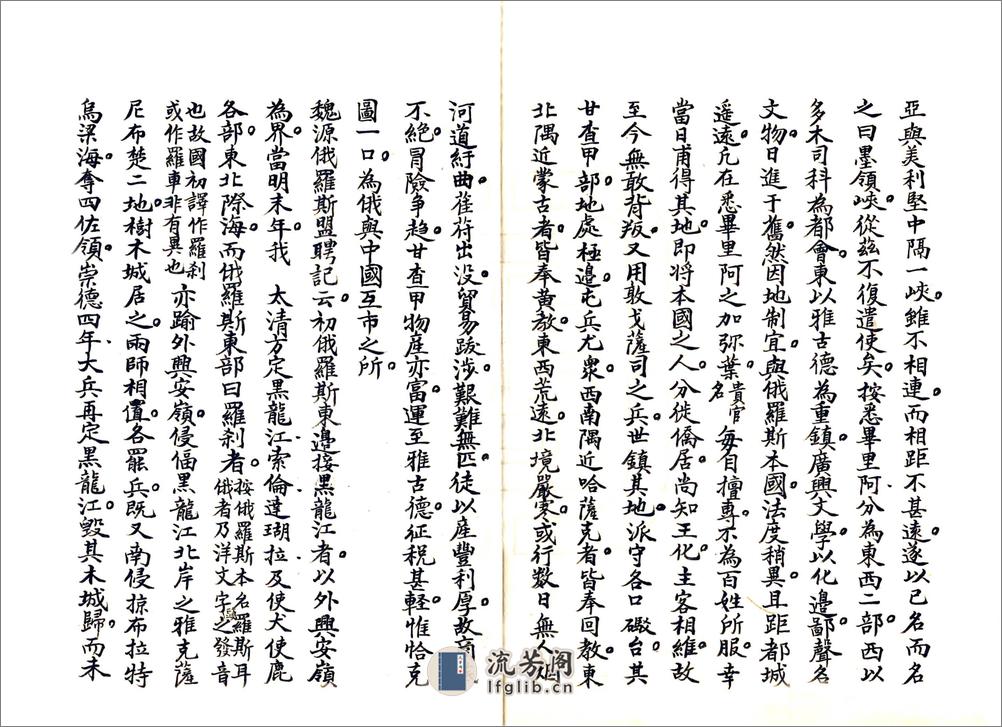 亞與美利堅中隔一峽雖不相連而相距不甚遠遂以己名而名
之曰墨領峽從茲不復遣使矣按悉畢里阿分為東西二部西以
多木司科為都會東以雅古德為重鎮廣興文學以化邊鄙聲名
文物日進于舊然因地制宜與俄羅斯本國法度稍異且距都城
遥遠凡在悉畢里阿之加弥葉貴官名每自擅專不為百姓所服幸
當日甫得其地即将本國之人分徙僑居尚知王化主客相維故
至今無敢背叛又用敦戈薩司之兵世鎮其地派守各口礮台其
甘查甲部地處極邊屯兵尤衆西南隅近哈薩克者皆奉回教東
北隅近蒙古者皆奉黄教東西荒遠北境嚴寒或行数日無人烟
河道紆曲萑苻出没貿易跋涉艱難無匹徒以産豐利厚故商
不絶冒險争趋甘查甲物産亦富運至雅古德征税甚輕惟恰克
圖一口為俄與中國互市之所
魏源俄羅斯盟聘記云初俄羅斯東邉接黒龍江者以外興安嶺
為界當明末年我 太清方定黒龍江索倫達瑚拉及使犬使鹿
各部東北際海而俄羅斯東部曰羅刹者按俄羅斯本名羅斯耳俄者乃洋文字頭之發音
也故國初譯作羅刹或作羅車非有異也亦踰外興安嶺侵偪黒龍江北岸之雅克薩
尼布楚二地樹木城居之兩師相值各罷兵既又南侵掠布拉特
烏梁海奪四佐領崇德四年大兵再定黒龍江毀其木城歸而未
流芳阁
lfglib.cn